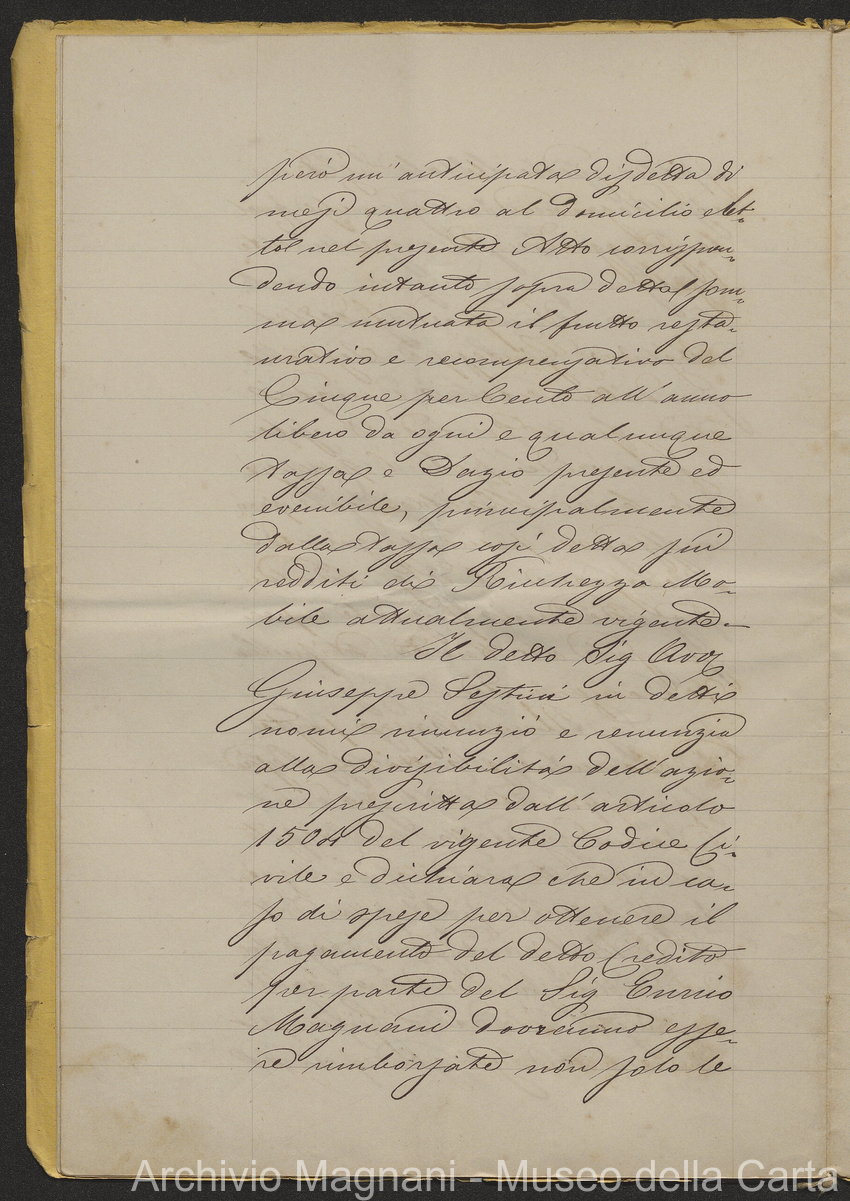 però un' anticipata disdetta di
mesi quattro al domicilio elet-
to nel presente Atto corrispon-
dendo intanto sopra detta som-
ma mutuata il frutto resta-
urativo e recompensativo del
Cinque per Cento all' anno
libero da ogni e qualunque
tassa e Dazio presente ed
evenibile, principalmente
dalla tassa così detta sui
redditi di Ricchezza Mo-
bile attualmente vigente.—
Il detto Sig Avv
Giuseppe Sestini in detti
nomi rinunziò e renunzia
alla divisibilità dell' azio-
ne prescritta dall' articolo
1504 del vigente Codice Ci-
vile e dichiara che in ca-
so di spese per ottenere il
pagamento del detto Credito
per parte del Sig Enrico
Magnani dovranno esse-
re rimborsate non solo le
Archivio Magnani - Museo della Carta